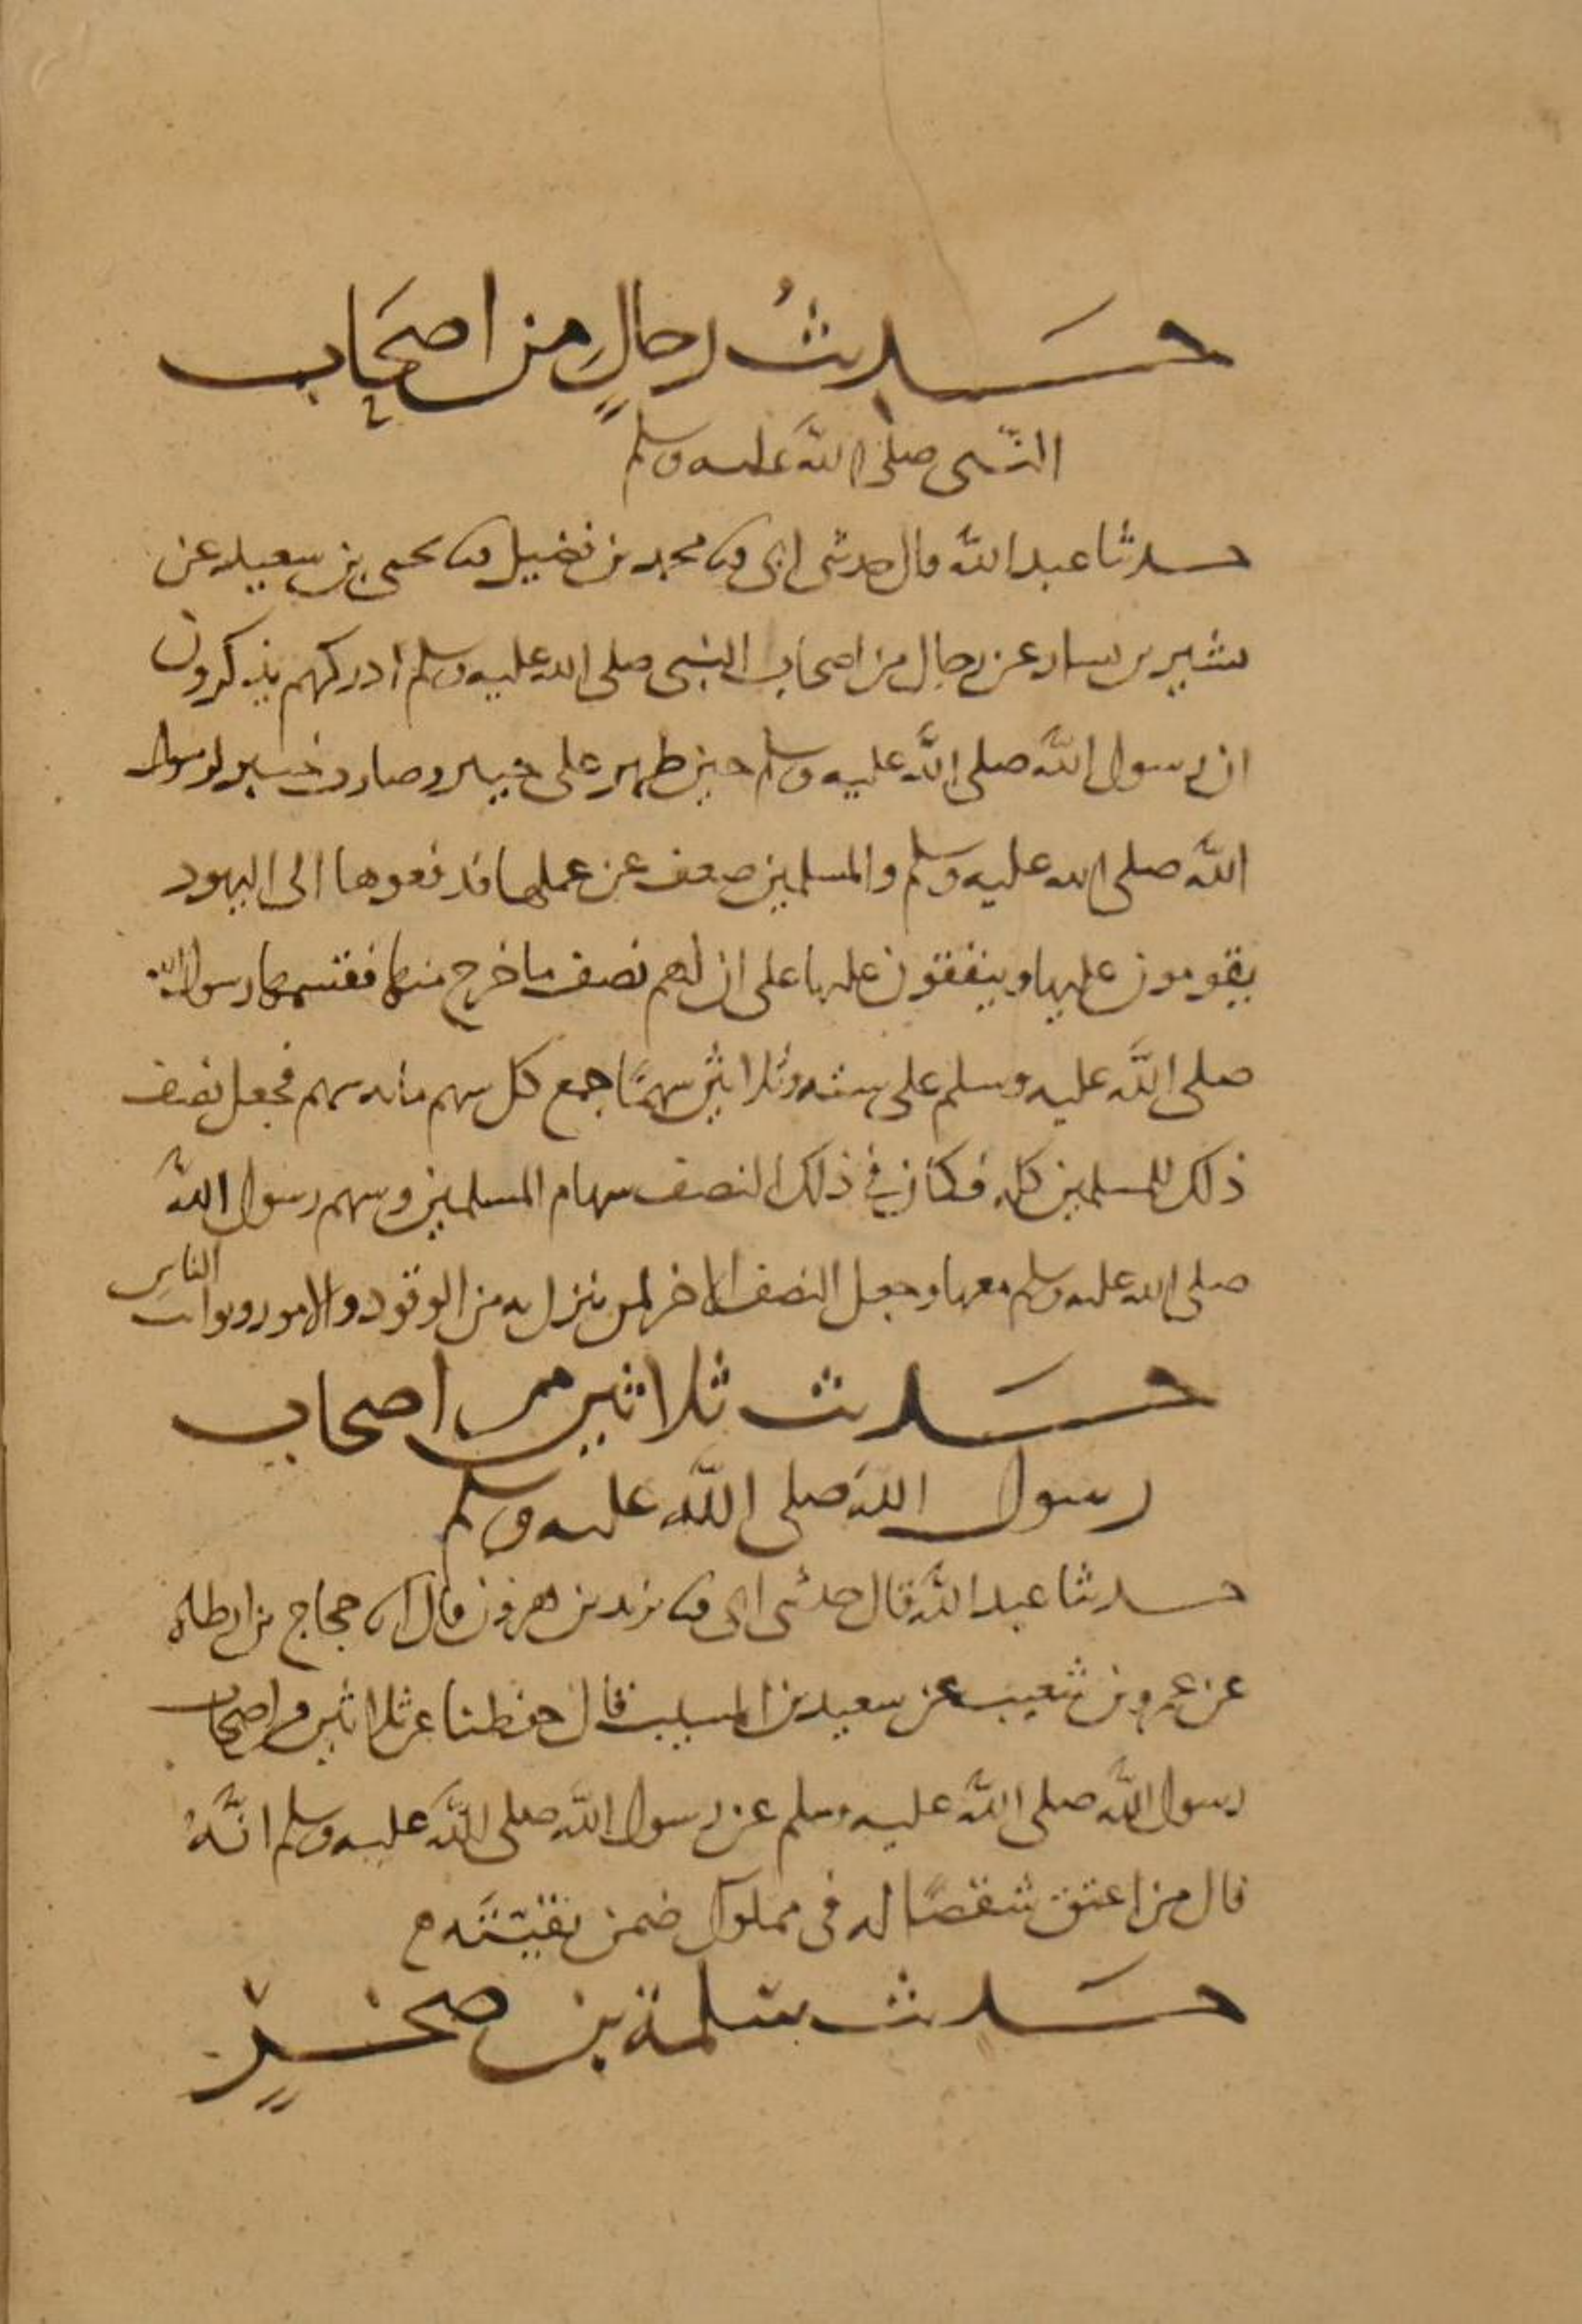 حديثُ رجالٍ من اصحَاب
النبي صلى الله عليه وسلم
حدثنا عبد الله قال حدثني ابي ثنا محمد بن فضيل ثنا يحيى بن سعيد عن
بشير بن يسار عن رجال من اصحاب النبي صلى الله عليه وسلم ادركهم يذكرون
ان رسول الله صلى الله عليه وسلم حين ظهر على خيبر وصارت خيبر لرسول
الله صلى الله عليه وسلم والمسلمين ضعف عن عملها فدفعوها الى اليهود
يقومون عليها وينفقون عليها على ان لهم نصف ما خرج منها فقسمها رسول الله
صلى الله عليه وسلم على ستة وثلاثين سهمًا جمع كل سهم مائة سهم فجعل نصف
ذلك للمسلمين كله فكان في ذلك النصف سهام المسلمين وسهم رسول الله
صلى الله عليه وسلم معها وجعل النصف الاخر لمن ينزل به من الوفود والامور ونوائب الناس
حديث ثلاثين من اصحاب
رسول الله صلى الله عليه وسلم
حدثنا عبد الله قال حدثني ابي ثنا يزيد بن هرون قال انا حجاج بن ارطاه
عن عمرو بن شعيب عن سعيد بن المسيب قال حفظنا عن ثلاثين من اصحاب
رسول الله صلى الله عليه وسلم عن رسول الله صلى الله عليه وسلم انَّهُ
قال من اعتق شقصًا له في مملوك ضمن بقيتَه
حديث سلمة بن صخرٍ